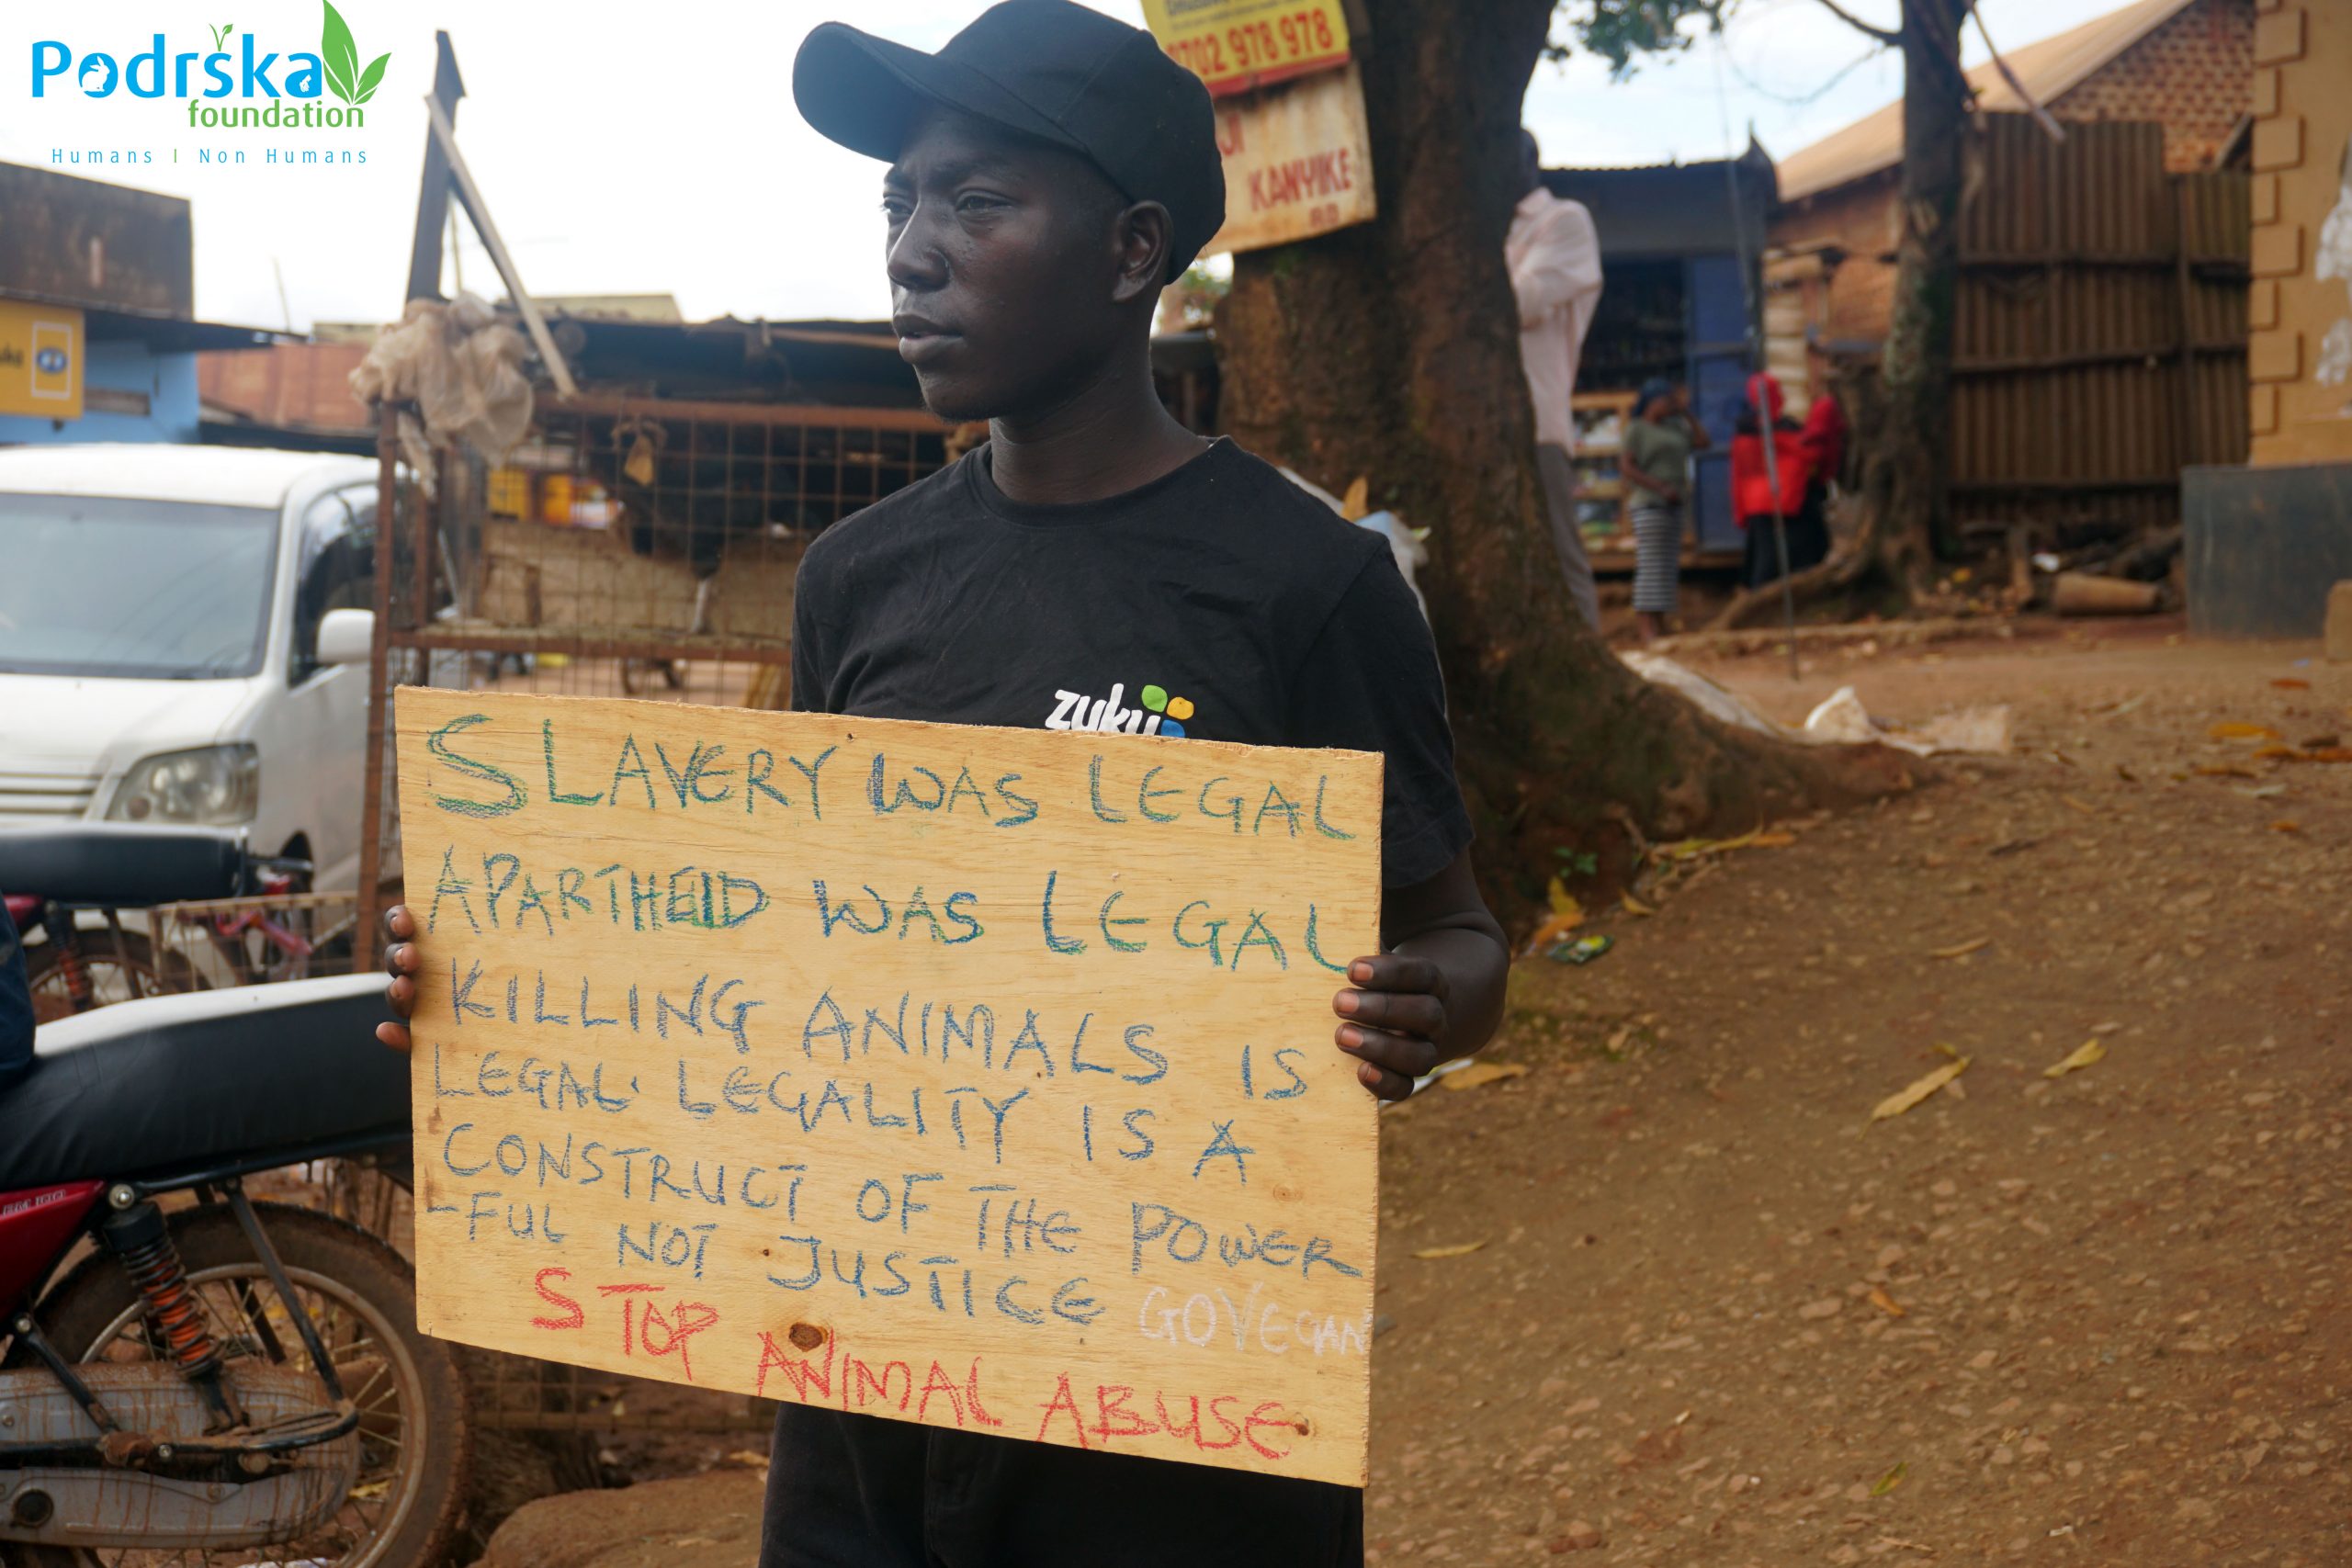 Podrška
foundation
Humans | Non Humans
0702 978 978
KANYIKE
zuku
SLAVERY WAS LEGAL
APARTHEID WAS LEGAL
KILLING ANIMALS IS
LEGAL. LEGALITY IS A
CONSTRUCT OF THE POWER
-FUL NOT JUSTICE GO VEGAN
STOP ANIMAL ABUSE